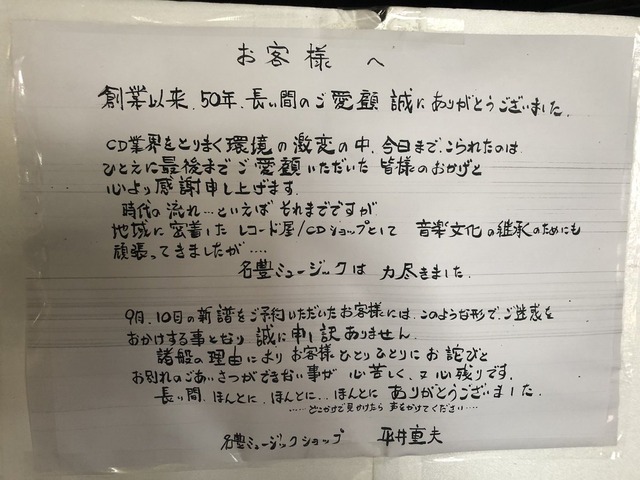 お客様へ
創業以来、50年、長い間のご愛顧 誠にありがとうございました。
CD業界をとりまく環境の激変の中、今日まで、こられたのは
ひとえに最後までご愛顧いただいた 皆様のおかげと
心より感謝申し上げます。
時代の流れ…といえば それまでですが
地域に密着した レコード屋/CDショップとして 音楽文化の継承のためにも
頑張ってきましたが‥‥
名豊ミュージックは 力尽きました。
9月、10月の新譜をご予約いただいたお客様には、このような形で、ご迷惑を
おかけする事となり 誠に申し訳ありません。
諸般の理由により お客様ひとりひとりに お詫びと
お別れのごあいさつができない事が 心苦しく、又 心残りです。
長い間、ほんとに、ほんとに…ほんとに ありがとうございました。
……どこかで見かけたら 声をかけてください……
名豊ミュージックショップ 平井重夫